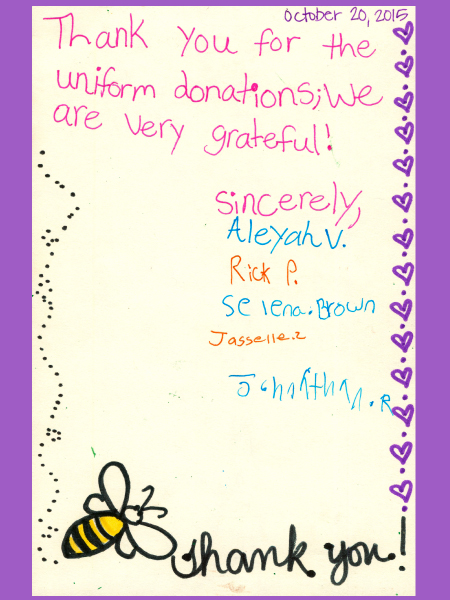 October 20, 2015
Thank you for the
uniform donations; we
are very grateful!
Sincerely,
Aleyah V.
Rick P.
Selena. Brown
Jasselle.z
Johnathan. R
Thank you!